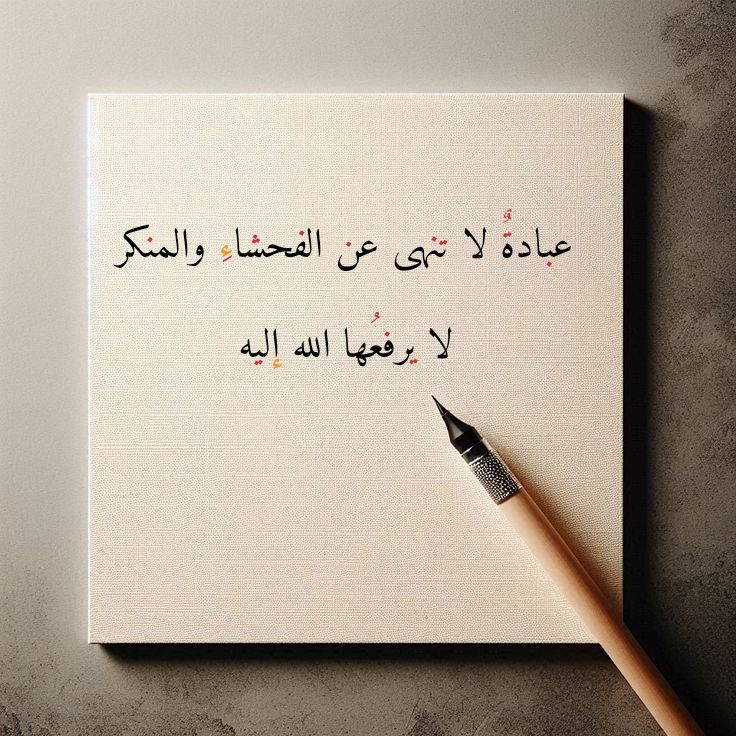 عبادةٌ لا تنهى عن الفحشاءِ والمنكر
لا يرفعُها الله إليه